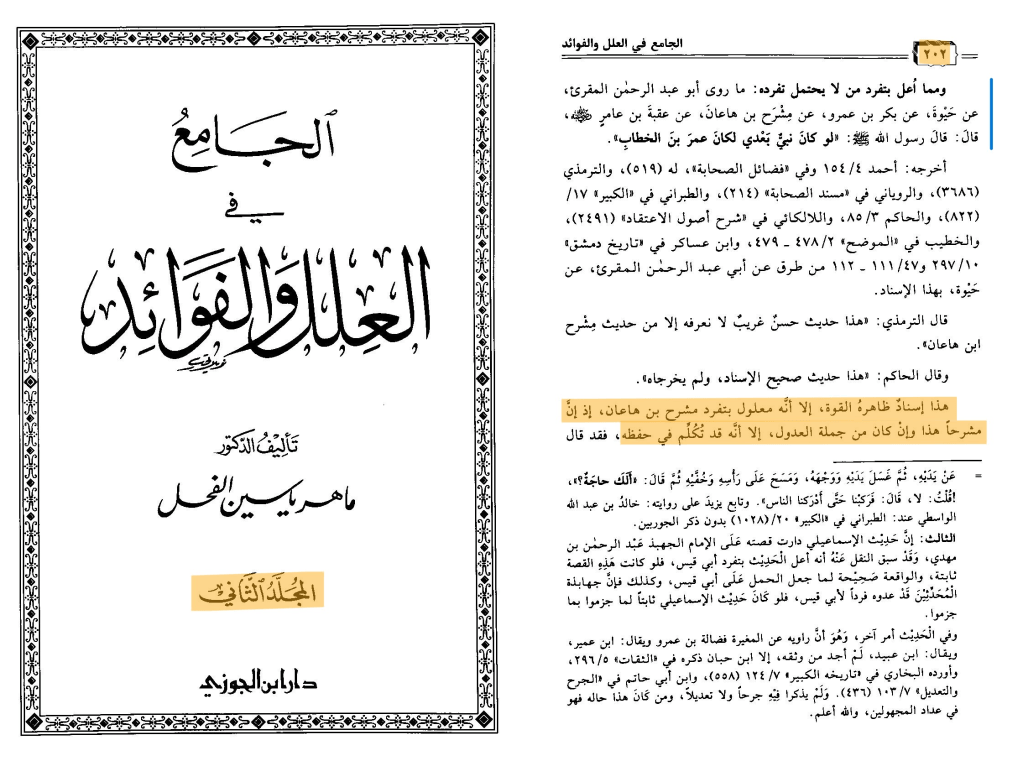 الجامع
في
العلل والفوائد
تأليف الدكتور
ماهر ياسين الفحل
المجلد الثاني
دار ابن الجوزي
الجامع في العلل والفوائد
٢٠٢
ومما أعل بتفرد من لا يحتمل تفرده: ما روى أبو عبد الرحمٰن المقرئ،
عن حَيْوةَ، عن بكر بن عمرو، عن مِشْرَح بن هاعانَ، عن عقبةَ بن عامرٍ رضي الله عنه،
قالَ: قالَ رسول الله ﷺ: «لو كانَ نبيٌّ بَعْدي لكانَ عمرَ بنَ الخطابِ».
أخرجه: أحمد ٤/ ١٥٤ وفي «فضائل الصحابة»، له (٥١٩)، والترمذي
(٣٦٨٦)، والروياني في «مسند الصحابة» (٢١٤)، والطبراني في «الكبير» ١٧/
(٨٢٢)، والحاكم ٣/ ٨٥، واللالكائي في «شرح أصول الاعتقاد» (٢٤٩١)،
والخطيب في «الموضح» ٢/ ٤٧٨ ـ ٤٧٩، وابن عساكر في «تاريخ دمشق»
١٠/ ٢٩٧ و٤٧/ ١١١ ـ ١١٢ من طرق عن أبي عبد الرحمٰن المقرئ، عن
حَيْوة، بهذا الإسناد.
قال الترمذي: «هذا حديث حسنٌ غريبٌ لا نعرفه إلا من حديث مِشْرح
ابن هاعان».
وقال الحاكم: «هذا حديث صحيح الإسناد، ولم يخرجاه».
هذا إسنادٌ ظاهرهُ القوة، إلا أنَّه معلول بتفرد مشرح بن هاعان، إذ إنَّ
مشرحاً هذا وإنْ كان من جملة العدول، إلا أنَّه قد تُكُلِّم في حفظه، فقد قال
= عَنْ يَدَيْهِ، ثُمَّ غَسَلَ يَدَيْهِ وَوَجْهَهُ، وَمَسَحَ عَلَى رَأْسِهِ وَخُفَّيْهِ ثُمَّ قَالَ: «أَلَكَ حاجَةٌ؟»،
قُلْتُ: لا، قَالَ: فَرَكِبْنَا حَتَّى أَدْرَكنا الناس». وتابع يزيدَ على روايته: خالدُ بن عبد الله
الواسطي عند: الطبراني في «الكبير» ٢٠/ (١٠٢٨) بدون ذكر الجوربين.
الثالث: إنَّ حَدِيْث الإسماعيلي دارت قصته عَلَى الإمام الجهبذ عَبْد الرحمٰن بن
مهدي، وَقَدْ سبق النقل عَنْهُ أنه أعل الْحَدِيْث بتفرد أبي قيس، فلو كانت هَذِهِ القصة
ثابتة، والواقعة صَحِيْحة لما جعل الحمل عَلَى أبي قيس، وكذلك فإنَّ جهابذة
الْمُحَدِّثِيْنَ قَدْ عدوه فرداً لأبي قيس، فلو كَانَ حَدِيْث الإسماعيلي ثابتاً لما جزموا بما
جزموا.
وفي الْحَدِيْث أمر آخر، وَهُوَ أنَّ راويه عن المغيرة فضالة بن عمرو ويقال: ابن عمير،
ويقال: ابن عبيد، لَمْ أجد من وثقه، إلا ابن حبان ذكره في «الثقات» ٥/ ٢٩٦،
وأورده البخاري في «تاريخه الكبير» ٧/ ١٢٤ (٥٥٨)، وابن أبي حاتم في «الجرح
والتعديل» ٧/ ١٠٣ (٤٣٦). وَلَمْ يذكرا فِيْهِ جرحاً ولا تعديلاً، ومن كَانَ هذا حاله فهو
في عداد المجهولين، والله أعلم.